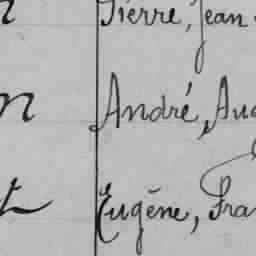 Pierre, Jean
André, Aug
Eugène, Fra